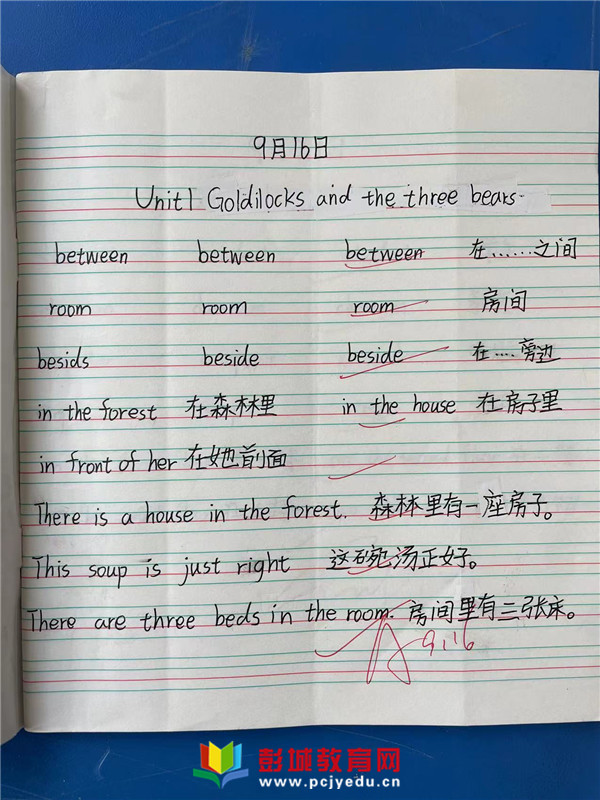 9月16日
Unit1 Goldilocks and the three bears
between between between 在……之间
room room room 房间
besids beside beside 在....旁边
in the forest 在森林里 in the house 在房子里
in front of her 在她前面
There is a house in the forest. 森林里有一座房子。
This soup is just right 这碗汤正好。
There are three beds in the room. 房间里有三张床。
A 9.16
彭城教育网
www.pcjyedu.cn